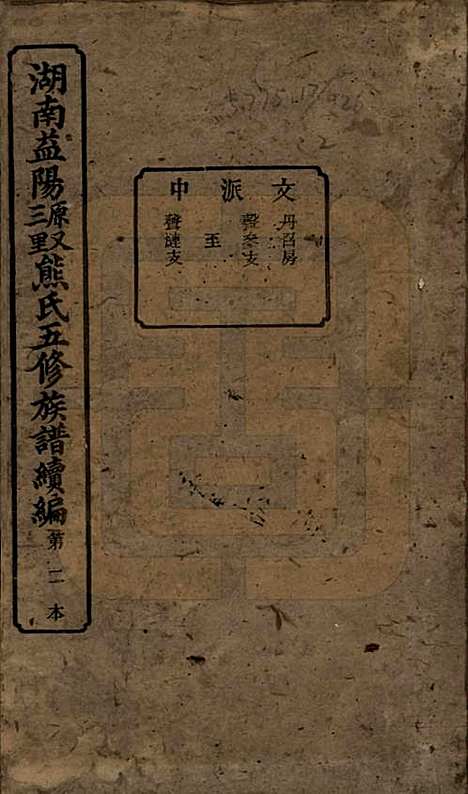 湖南益陽原又三里熊氏五修族譜續編
第二本
文派中
丹召房
聲叅支
至
聲漣支